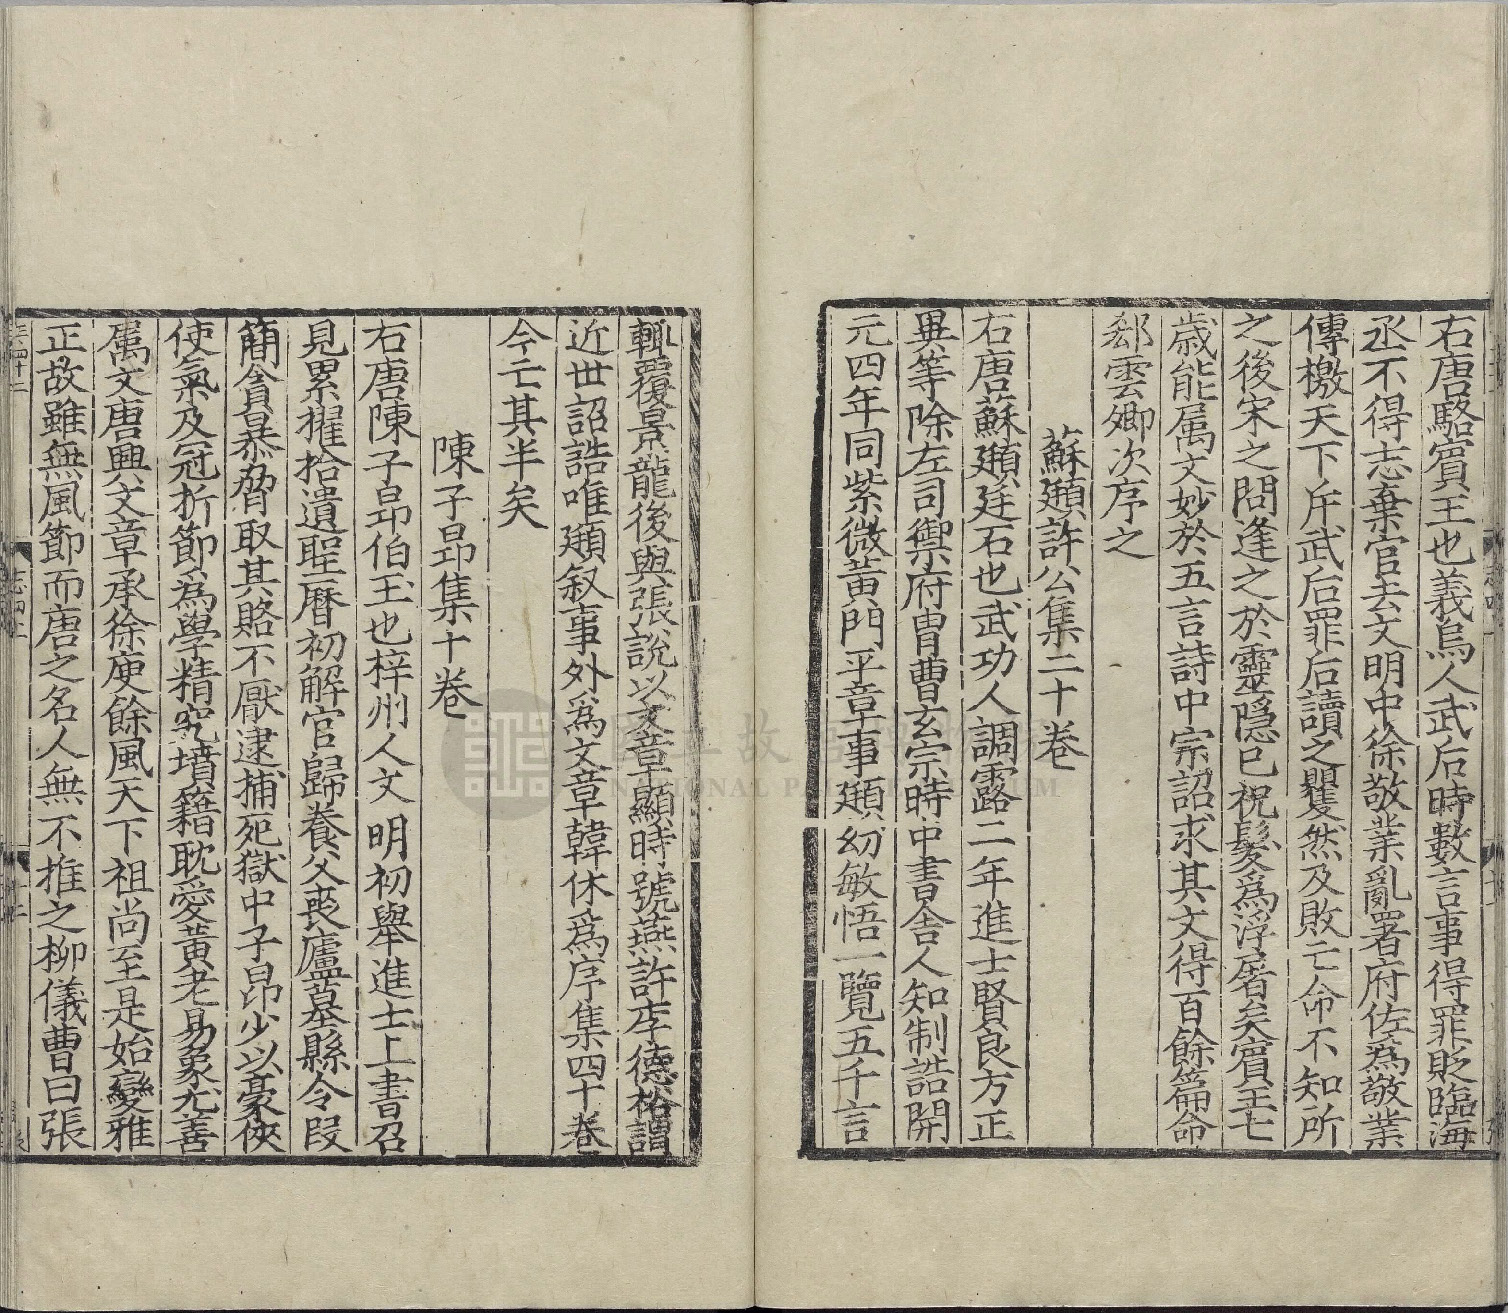 右唐駱賓王也義烏人武后時數言事得罪貶臨海
丞不得志棄官去文明中徐敬業亂署府佐爲敬業
傳檄天下斥武后罪后讀之矍然及敗亡命不知所
之後宋之問逢之於靈隱已祝髮爲浮屠矣賓王七
歲能属文妙於五言詩中宗詔求其文得百餘篇命
郄雲卿次序之
蘇頲許公集二十卷
右唐蘇頲廷石也武功人調露二年進士賢良方正
異等除左司禦府胄曹玄宗時中書舍人知制誥開
元四年同紫微黃門平章事頲幼敏悟一覽五千言
輒覆景龍後與張說以文章顯時號燕許李德裕謂
近世詔誥唯頲叙事外爲文章韓休爲序集四十卷
今亡其半矣
陳子昂集十卷
右唐陳子昂伯玉也梓州人文明初舉進士上書召
見累擢拾遺聖曆初解官歸養父喪廬墓縣令叚
簡貪暴脅取其賂不厭逮捕死獄中子昂少以豪俠
使氣及冠折節爲學精究墳籍耽愛黃老易象尤善
属文唐興文章承徐庾餘風天下祖尚至是始變雅
正故雖無風節而唐之名人無不推之柳儀曹曰張
國立故宮博物院
NATIONAL PALACE MUSEUM